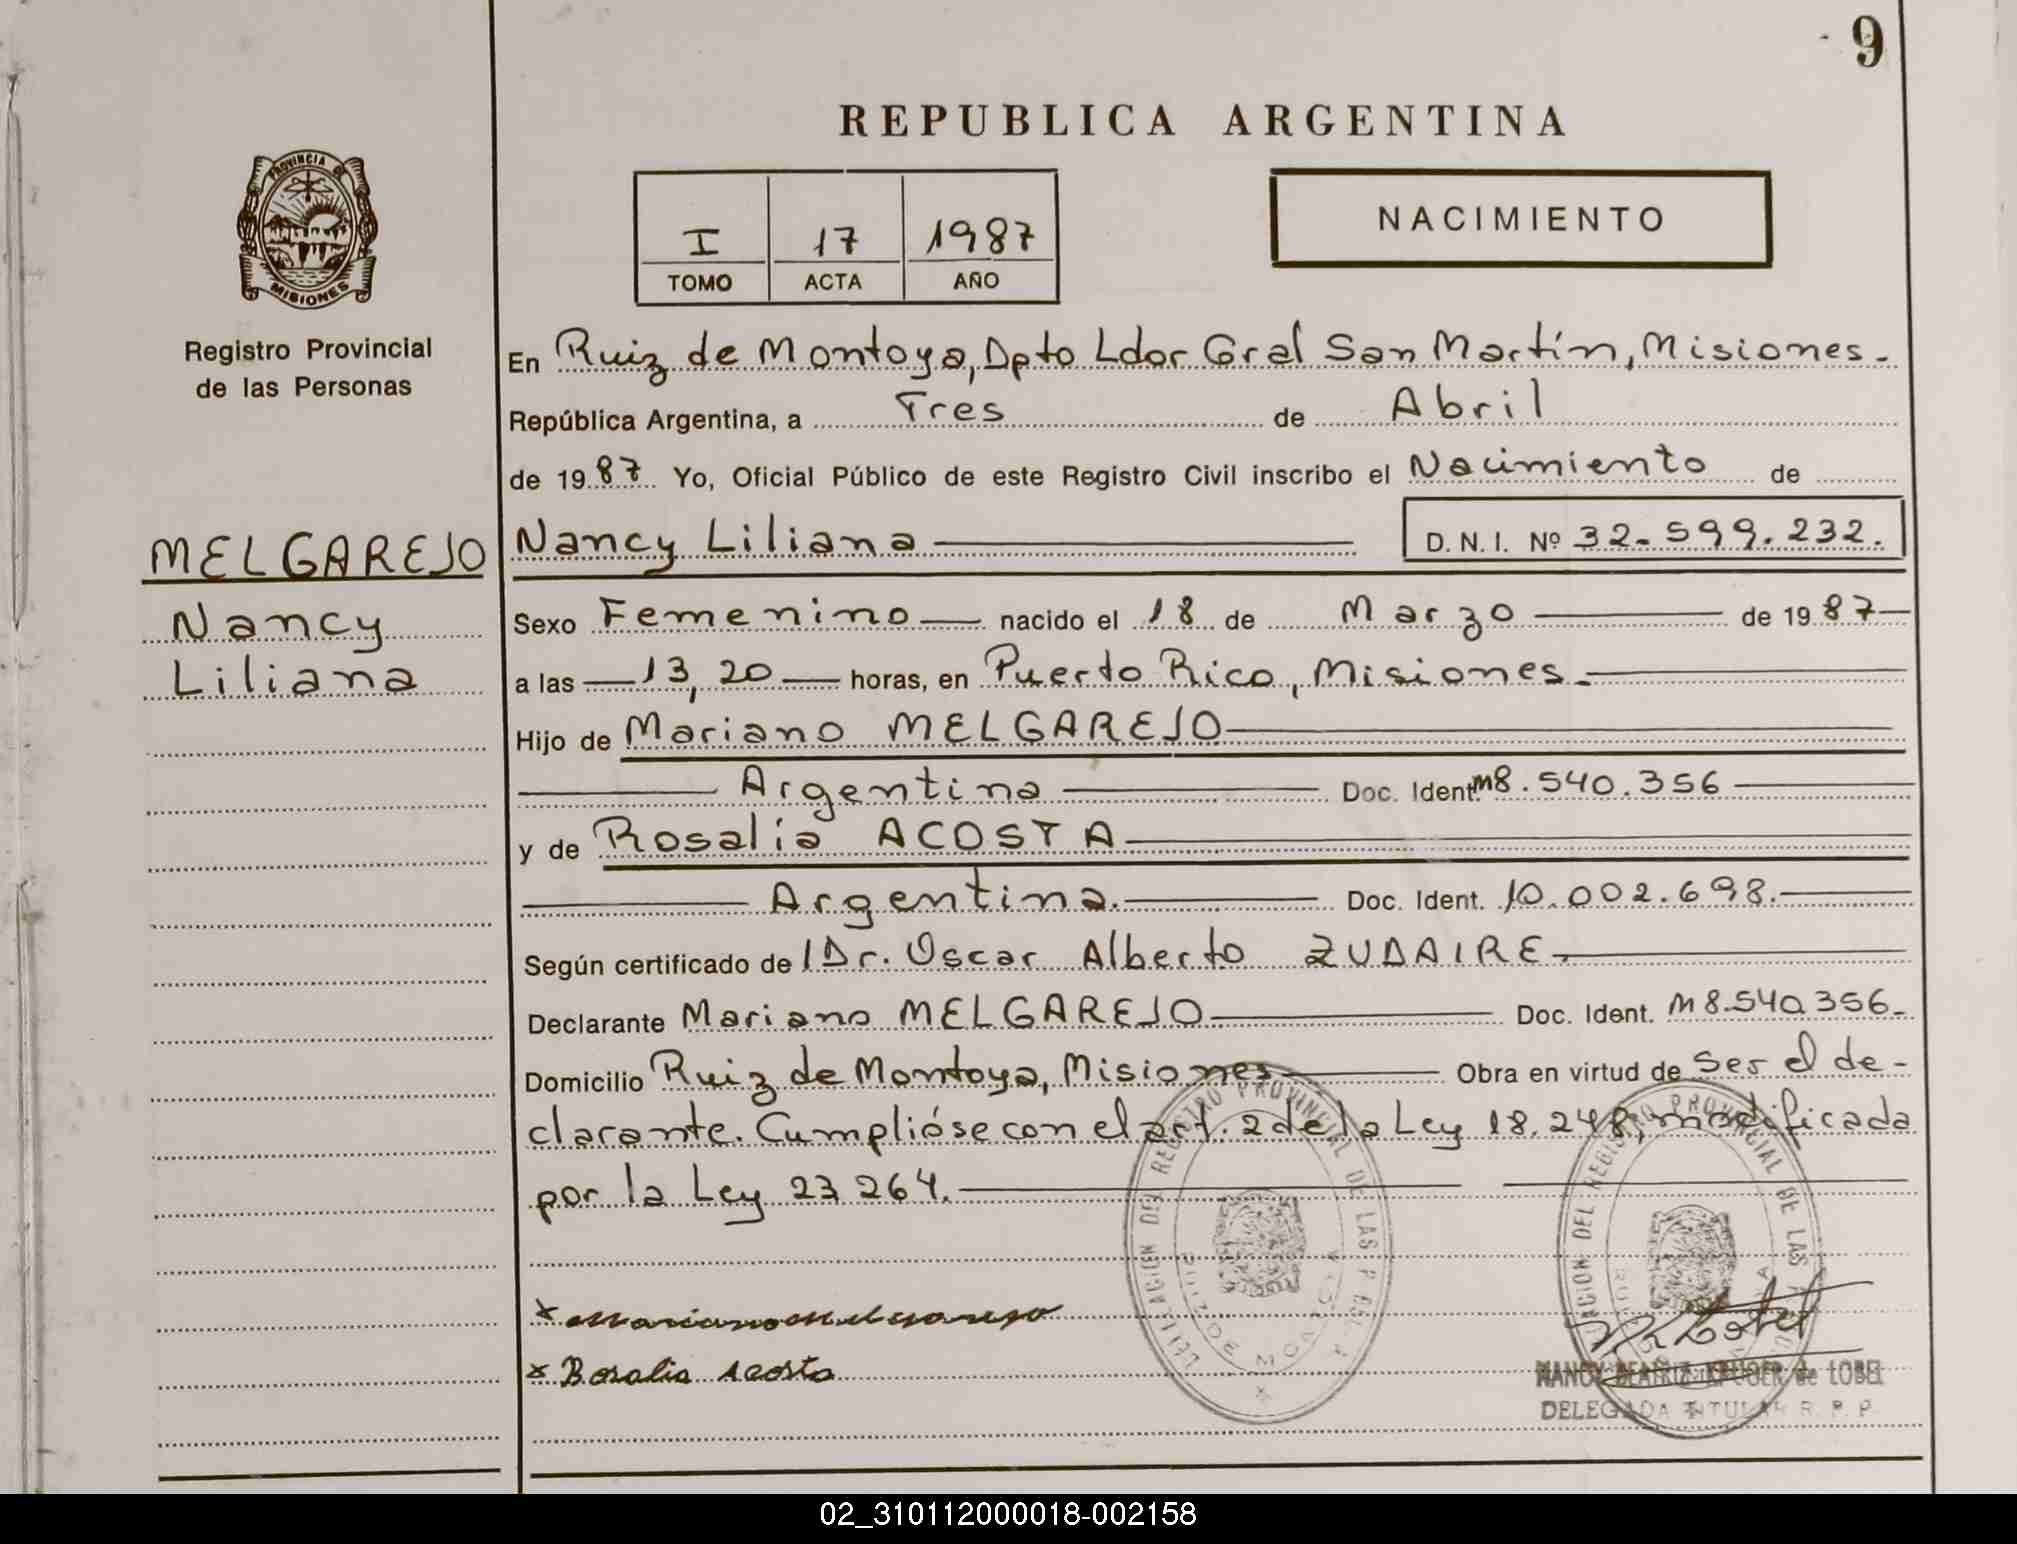 9
REPUBLICA ARGENTINA
PROVINCIA DE
MISIONES
Registro Provincial
de las Personas
I 17 1987
TOMO ACTA AÑO
NACIMIENTO
En Ruiz de Montoya, Dpto Ldor Gral San Martín, Misiones.
República Argentina, a Tres de Abril
de 1987 Yo, Oficial Público de este Registro Civil inscribo el Nacimiento de
MELGAREJO
Nancy
Liliana
Nancy Liliana D.N.I. Nº 32.599.232.
Sexo Femenino nacido el 18 de Marzo de 1987
a las 13,20 horas, en Puerto Rico, Misiones.
Hijo de Mariano MELGAREJO
Argentina Doc. Ident. M8.540.356
y de Rosalia ACOSTA
Argentina. Doc. Ident. 10.002.698.
Según certificado de Dr. Oscar Alberto ZUDAIRE
Declarante Mariano MELGAREJO Doc. Ident. M8.540.356.
Domicilio Ruiz de Montoya, Misiones Obra en virtud de ser el de-
clarante. Cumplióse con el art. 2 de la Ley 18.248, modificada
por la Ley 23 264.
x Mariano Melgarejo
x Rosalia Acosta
NANCY BEATRIZ KRUGER de LOBEL
DELEGADA TITULAR R. P. P.
02_310112000018-002158